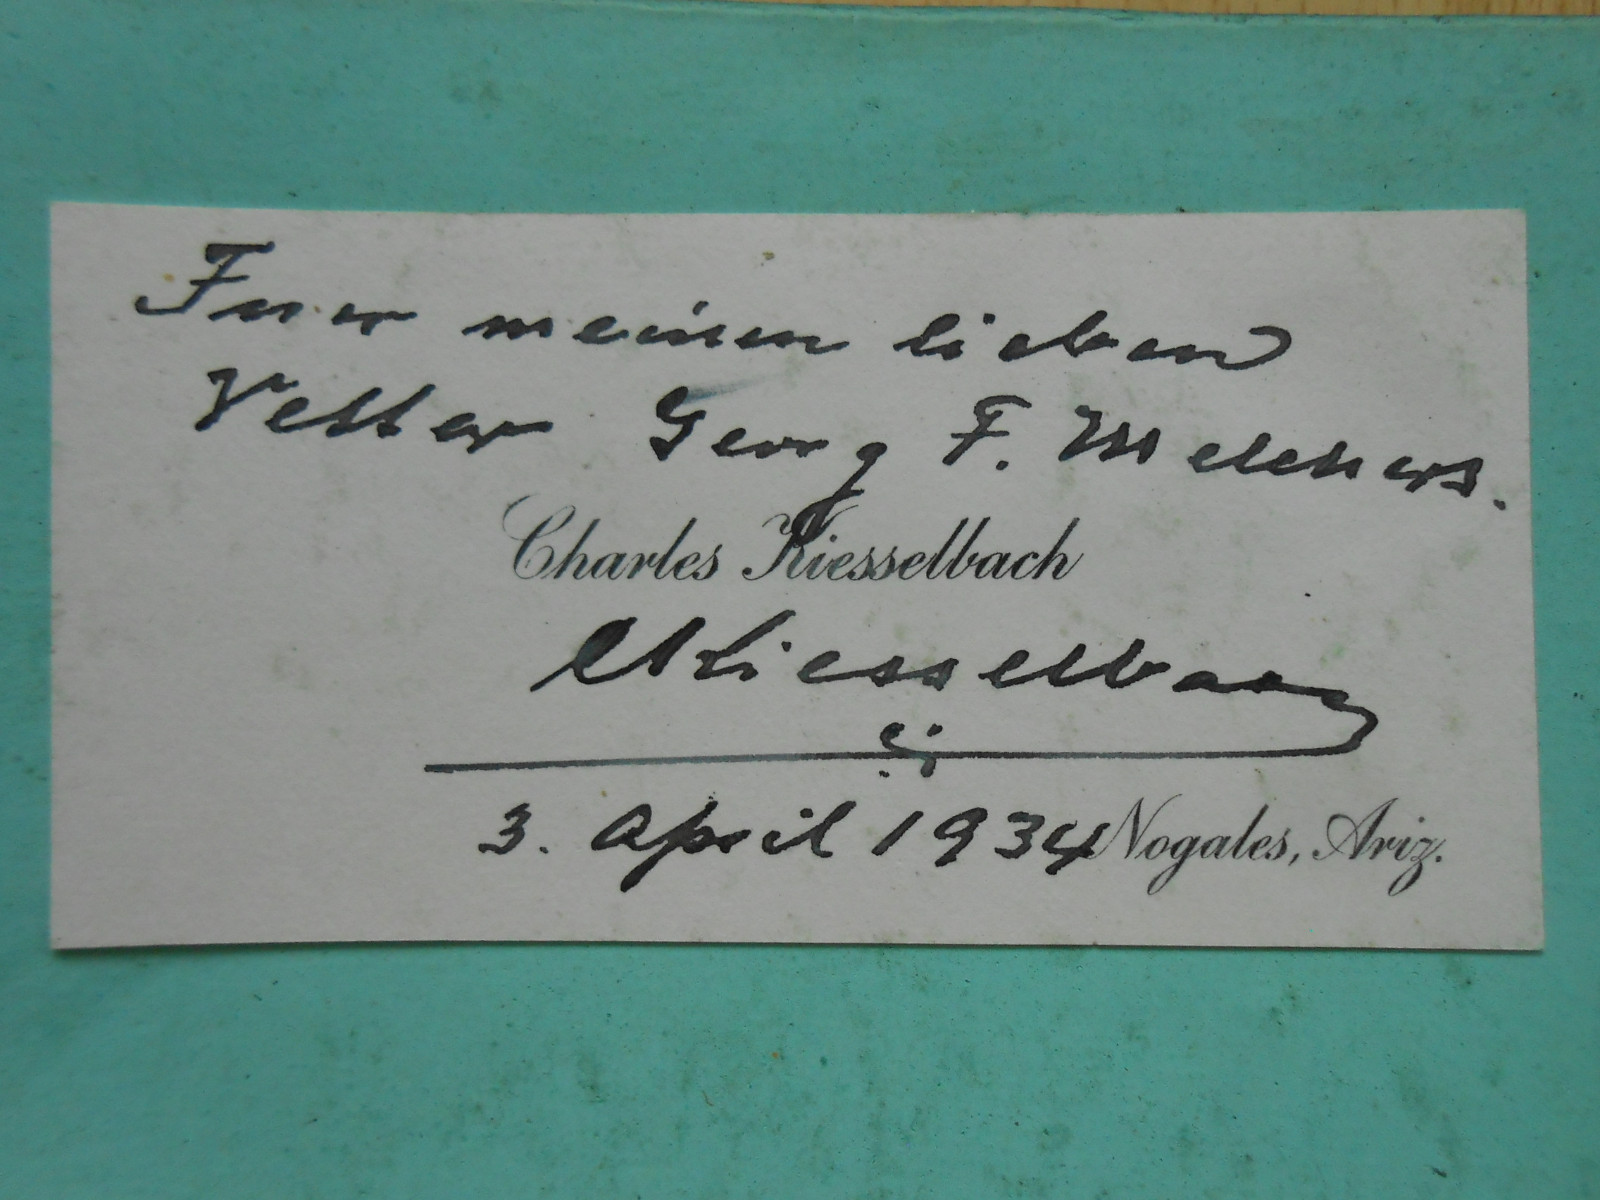 Fuer meinen lieben
Vetter Georg F. Melchers.
Charles Kiesselbach
CKiesselbach
3. April 1934 Nogales, Ariz.